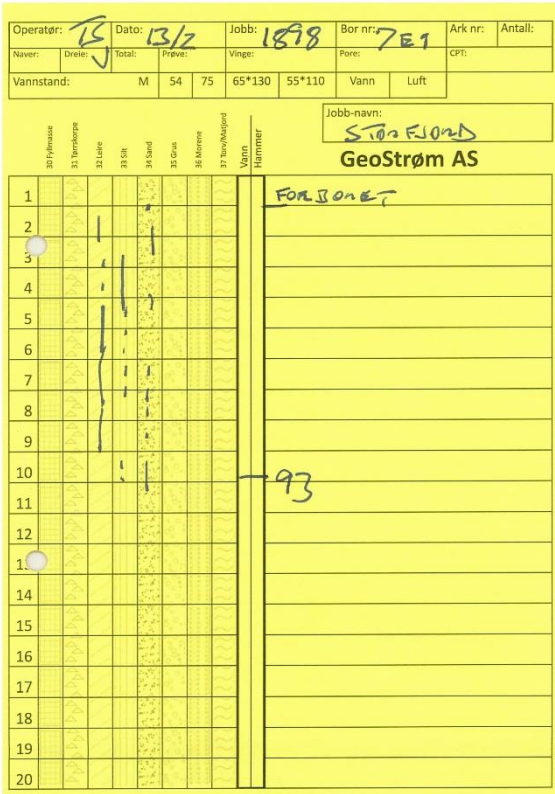 Operatør: TS Dato: 13/2 Jobb: 1898 Bor nr: 7E1 Ark nr: Antall:
Naver: Dreie: Total: Prøve: Vinge: Pore: CPT:
Vannstand: M 54 75 65*130 55*110 Vann Luft
Jobb-navn:
STORFJORD
GeoStrøm AS
30 Fyllmasse
31 Tørrskorpe
32 Leire
33 Silt
34 Sand
35 Grus
36 Morene
37 Torv/Matjord
Vann
Hammer
1 FORBORET
2
3
4
5
6
7
8
9
10 93
11
12
14
15
16
17
18
19
20